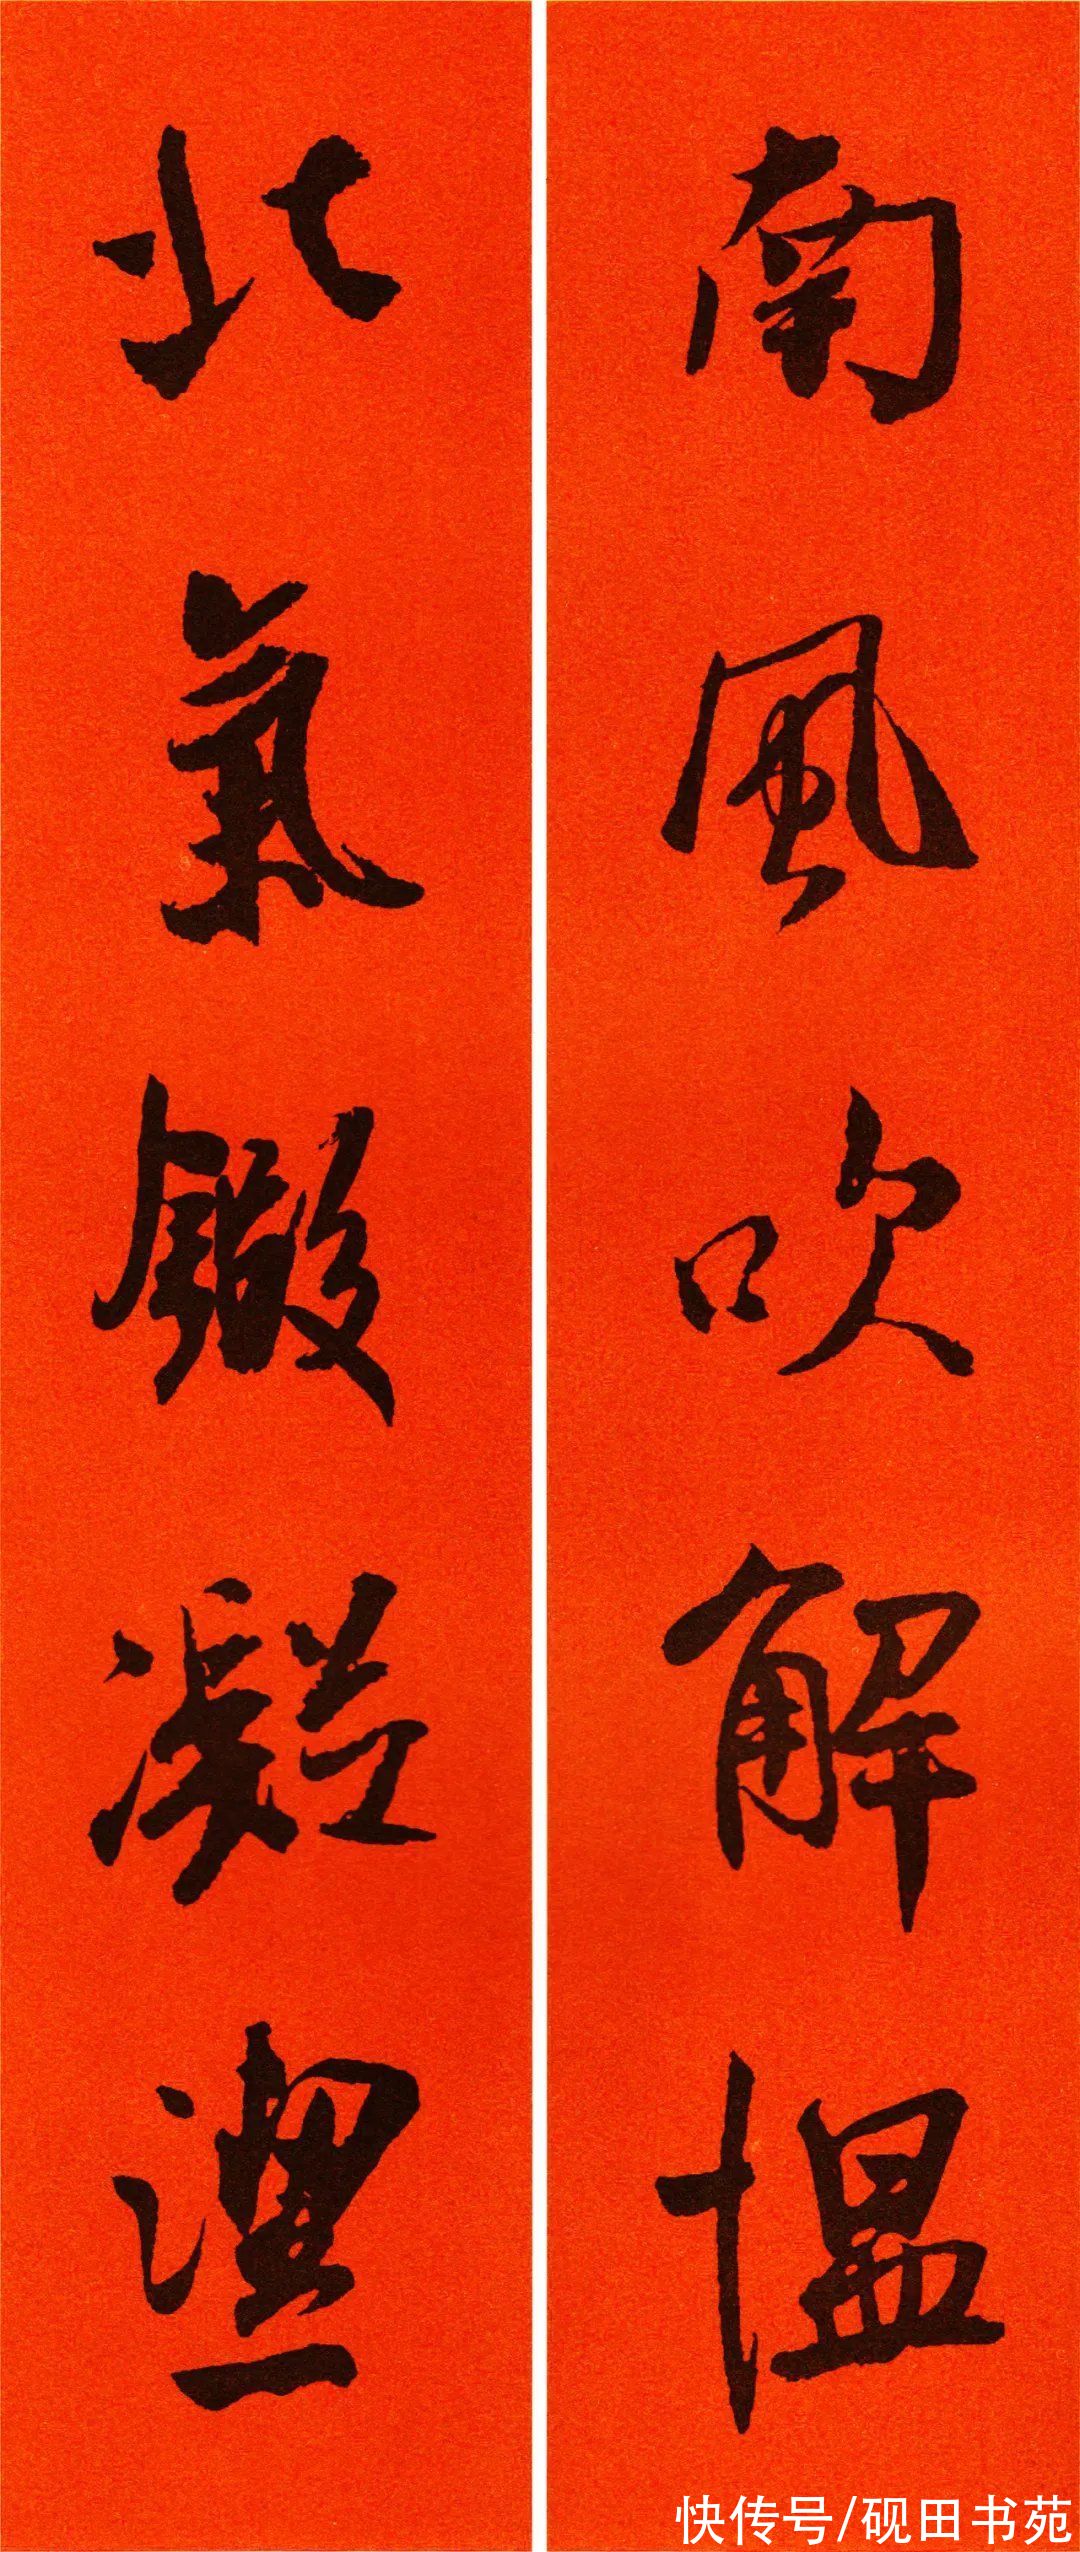 南風吹解愠
北氣鍛凝
快传号/砚田书苑